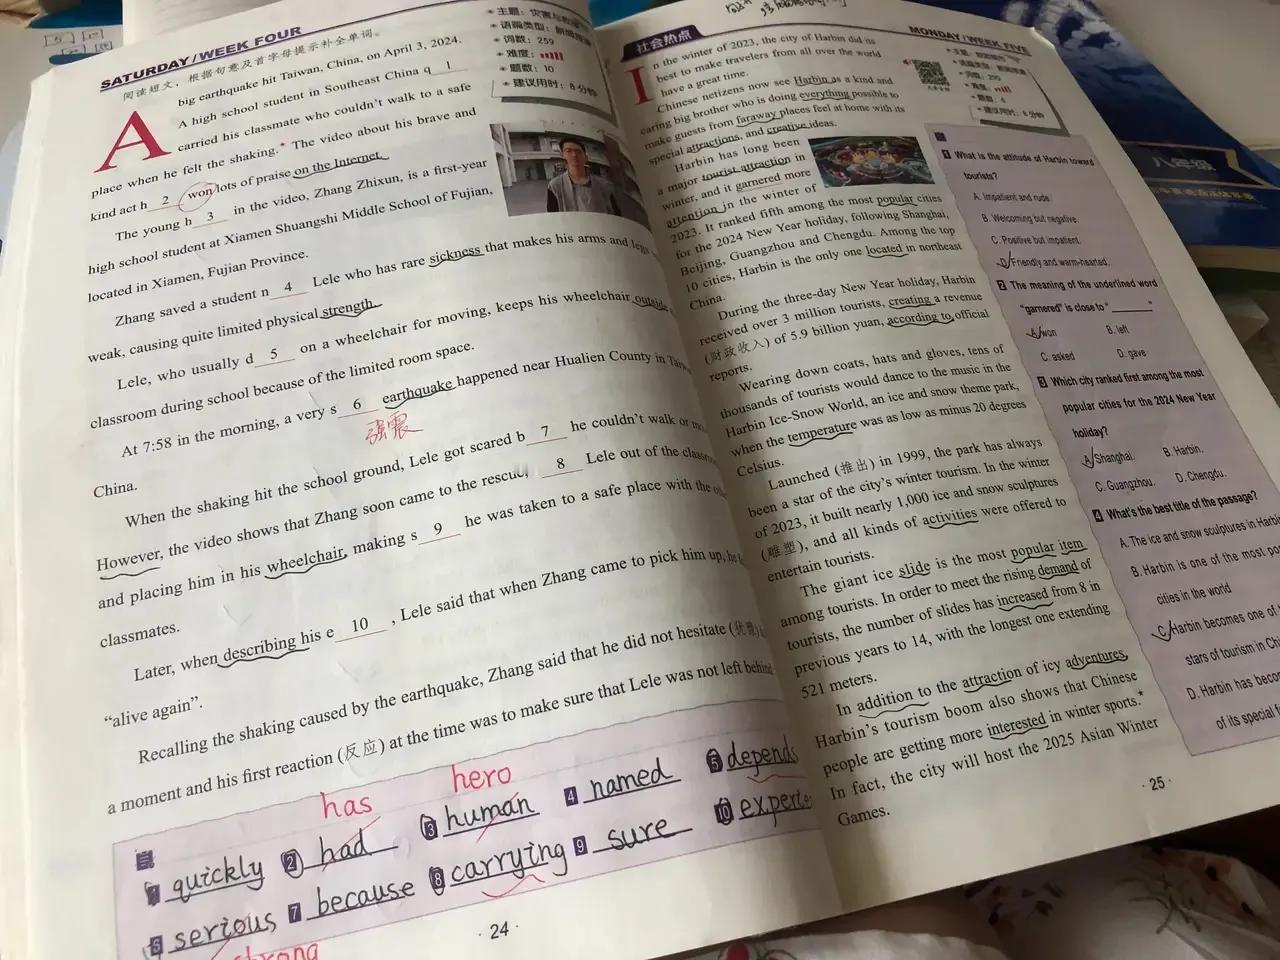 SATURDAY/WEEK FOUR
阅读短文，根据句意及首字母提示补全单词。
语篇类型：新闻报道
词数：259
难度：
题数：10
建议用时：8分钟
A big earthquake hit Taiwan, China, on April 3, 2024.
A high school student in Southeast China q 1
carried his classmate who couldn't walk to a safe
place when he felt the shaking.* The video about his brave and
kind act h 2 won lots of praise on the Internet.
The young h 3 in the video, Zhang Zhixun, is a first-year
high school student at Xiamen Shuangshi Middle School of Fujian,
located in Xiamen, Fujian Province.
Zhang saved a student n 4 Lele who has rare sickness that makes his arms and legs
weak, causing quite limited physical strength.
Lele, who usually d 5 on a wheelchair for moving, keeps his wheelchair outside
classroom during school because of the limited room space.
At 7:58 in the morning, a very s 6 earthquake happened near Hualien County in
强震
China.
When the shaking hit the school ground, Lele got scared b 7 he couldn't walk or
However, the video shows that Zhang soon came to the rescue, 8 Lele out of the
and placing him in his wheelchair, making s 9 he was taken to a safe place with the
classmates.
Later, when describing his e 10 , Lele said that when Zhang came to pick him up, he
"alive again".
Recalling the shaking caused by the earthquake, Zhang said that he did not hesitate (犹豫)
a moment and his first reaction (反应) at the time was to make sure that Lele was not left behind
has hero
1 quickly 2 had 3 human 4 named 5 depends
6 serious 7 because 8 carrying 9 sure 10
strong
· 24 ·
社会热点
MONDAY/WEEK FIVE
建议用时：6分钟
In the winter of 2023, the city of Harbin did its
best to make travelers from all over the world
have a great time.
Chinese netizens now see Harbin as a kind and
caring big brother who is doing everything possible to
make guests from faraway places feel at home with its
special attractions, and creative ideas.
Harbin has long been
a major tourist attraction in
winter, and it garnered more
attention in the winter of
2023. It ranked fifth among the most popular cities
for the 2024 New Year holiday, following Shanghai,
Beijing, Guangzhou and Chengdu. Among the top
10 cities, Harbin is the only one located in northeast
China.
During the three-day New Year holiday, Harbin
received over 3 million tourists, creating a revenue
(财政收入) of 5.9 billion yuan, according to official
reports.
Wearing down coats, hats and gloves, tens of
thousands of tourists would dance to the music in the
Harbin Ice-Snow World, an ice and snow theme park,
when the temperature was as low as minus 20 degrees
Celsius.
Launched (推出) in 1999, the park has always
been a star of the city's winter tourism. In the winter
of 2023, it built nearly 1,000 ice and snow sculptures
(雕塑), and all kinds of activities were offered to
entertain tourists.
The giant ice slide is the most popular item
among tourists. In order to meet the rising demand of
tourists, the number of slides has increased from 8 in
previous years to 14, with the longest one extending
521 meters.
In addition to the attraction of icy adventures,
Harbin's tourism boom also shows that Chinese
people are getting more interested in winter sports.*
In fact, the city will host the 2025 Asian Winter
Games.
1 What is the attitude of Harbin toward
tourists?
A. Impatient and rude.
B. Welcoming but negative.
C. Positive but impatient.
D. Friendly and warm-hearted.
2 The meaning of the underlined word
"garnered" is close to "______"
A. won B. left
C. asked D. gave
3 Which city ranked first among the most
popular cities for the 2024 New Year
holiday?
A. Shanghai. B. Harbin.
C. Guangzhou. D. Chengdu.
4 What's the best title of the passage?
A. The ice and snow sculptures in Harbin
B. Harbin is one of the most
cities in the world
C. Harbin becomes one of
stars of tourism in
D. Harbin has
of its special
· 25 ·
八年级